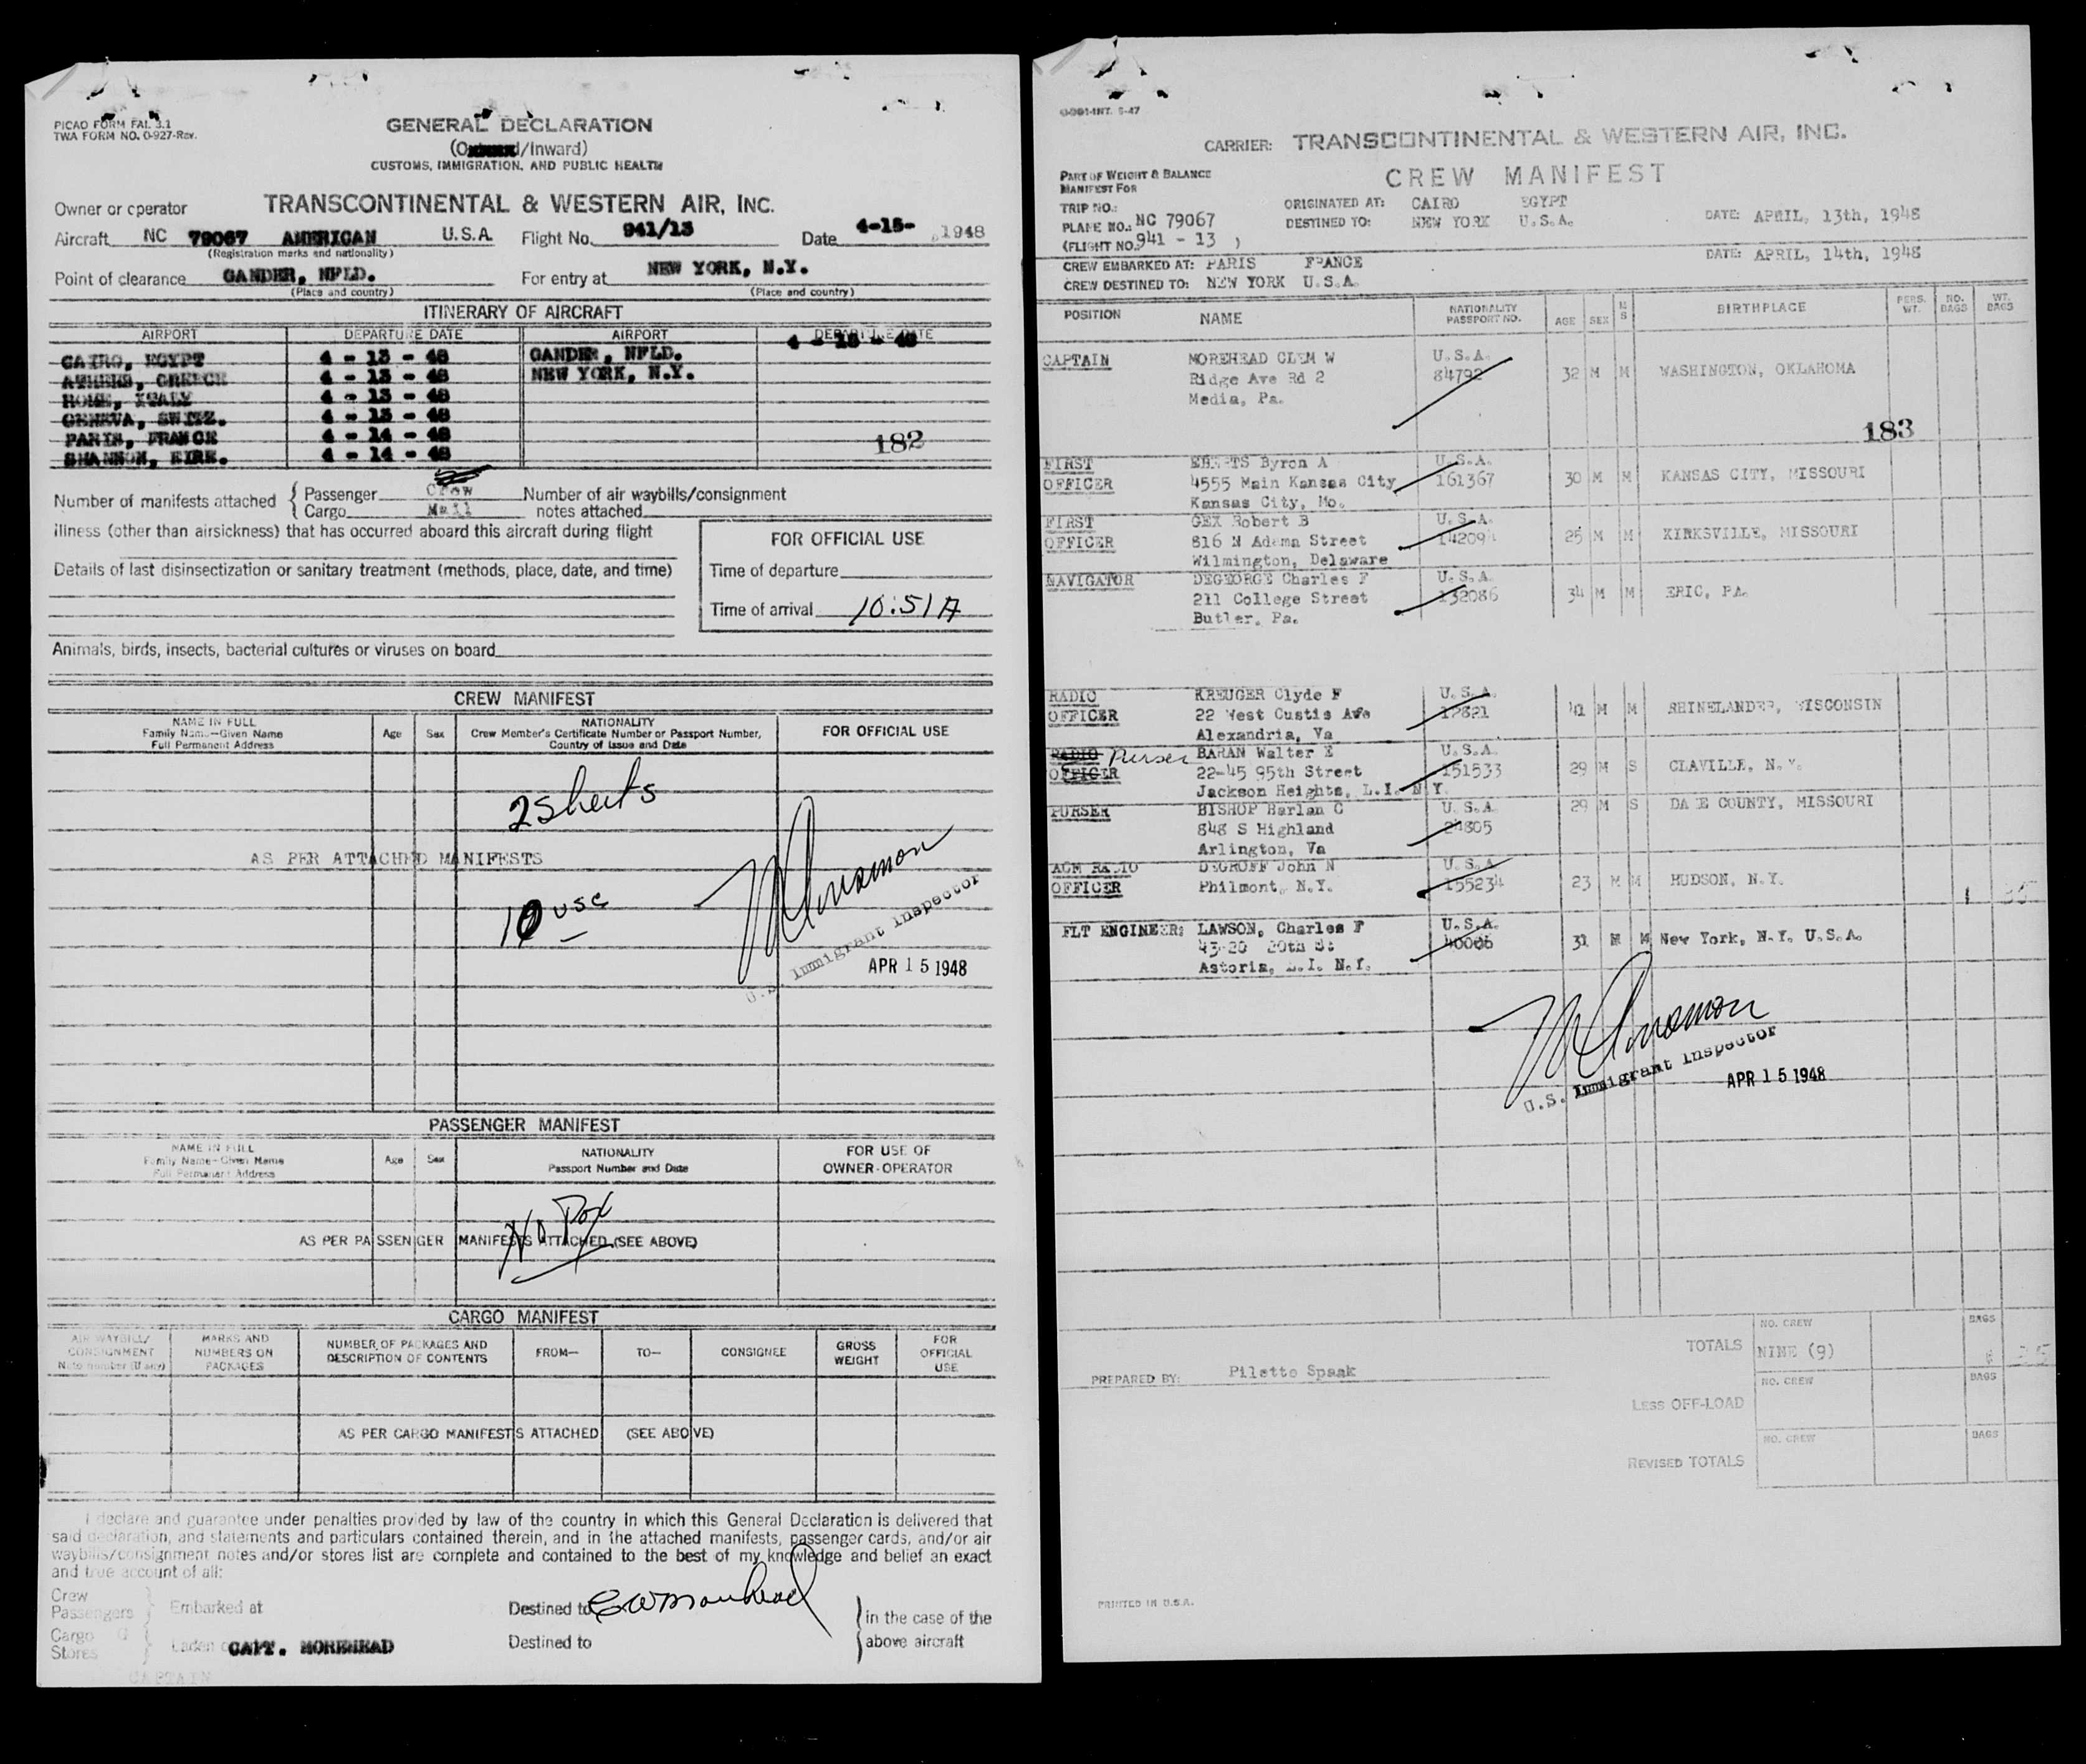 PICAO FORM FAL 3.1
TWA FORM NO. O-927-Rev.
GENERAL DECLARATION
/Inward)
CUSTOMS, IMMIGRATION, AND PUBLIC HEALTH
Owner or operator TRANSCONTINENTAL & WESTERN AIR, INC.
Aircraft NC 79067 AMERICAN U.S.A. Flight No. 941/13 Date 4-15- 1948
(Registration marks and nationality)
Point of clearance GANDER, NFLD. For entry at NEW YORK, N.Y.
(Place and country) (Place and country)
ITINERARY OF AIRCRAFT
AIRPORT DEPARTURE DATE AIRPORT DEPARTURE DATE
CAIRO, EGYPT 4 - 13 - 48 GANDER, NFLD. 4 - 15 - 48
ATHENS, GREECE 4 - 13 - 48 NEW YORK, N.Y.
ROME, ITALY 4 - 13 - 48
GENEVA, SWITZ. 4 - 13 - 48
PARIS, FRANCE 4 - 14 - 48 182
SHANNON, EIRE. 4 - 14 - 48
Number of manifests attached { Passenger Crew Number of air waybills/consignment
Cargo Mail notes attached
Illness (other than airsickness) that has occurred aboard this aircraft during flight
FOR OFFICIAL USE
Details of last disinsectization or sanitary treatment (methods, place, date, and time)
Time of departure
Time of arrival 10:51A
Animals, birds, insects, bacterial cultures or viruses on board
CREW MANIFEST
NAME IN FULL
Family Name—Given Name
Full Permanent Address
Age Sex
NATIONALITY
Crew Member's Certificate Number or Passport Number,
Country of Issue and Date
FOR OFFICIAL USE
2 Sheets
AS PER ATTACHED MANIFESTS
10 USC
U.S. Immigrant Inspector
APR 15 1948
PASSENGER MANIFEST
NAME IN FULL
Family Name—Given Name
Full Permanent Address
Age Sex
NATIONALITY
Passport Number and Date
FOR USE OF
OWNER-OPERATOR
No Pax
AS PER PASSENGER MANIFESTS ATTACHED (SEE ABOVE)
CARGO MANIFEST
AIR WAYBILL/
CONSIGNMENT
Note number (if any)
MARKS AND
NUMBERS ON
PACKAGES
NUMBER OF PACKAGES AND
DESCRIPTION OF CONTENTS
FROM— TO— CONSIGNEE
GROSS
WEIGHT
FOR
OFFICIAL
USE
AS PER CARGO MANIFESTS ATTACHED (SEE ABOVE)
I declare and guarantee under penalties provided by law of the country in which this General Declaration is delivered that
said declaration, and statements and particulars contained therein, and in the attached manifests, passenger cards, and/or air
waybills/consignment notes and/or stores list are complete and contained to the best of my knowledge and belief an exact
and true account of all:
Crew
Passengers } Embarked at Destined to CW Morehead } in the case of the
Cargo
Stores } Laden CAPT. MOREHEAD Destined to above aircraft
CAPTAIN
O-991-INT. 5-47
CARRIER: TRANSCONTINENTAL & WESTERN AIR, INC.
PART OF WEIGHT & BALANCE
MANIFEST FOR
CREW MANIFEST
TRIP NO.: ORIGINATED AT: CAIRO EGYPT DATE: APRIL, 13th, 1948
PLANE NO.: NC 79067 DESTINED TO: NEW YORK U.S.A.
(FLIGHT NO. 941 - 13 )
CREW EMBARKED AT: PARIS FRANCE DATE: APRIL, 14th, 1948
CREW DESTINED TO: NEW YORK U.S.A.
POSITION NAME NATIONALITY PASSPORT NO. AGE SEX M S BIRTHPLACE PERS. WT. NO. BAGS WT. BAGS
CAPTAIN MOREHEAD CLEM W U.S.A.
Ridge Ave Rd 2 84792 32 M M WASHINGTON, OKLAHOMA
Media, Pa.
183
FIRST EBERTS Byron A U.S.A.
OFFICER 4555 Main Kansas City 161367 30 M M KANSAS CITY, MISSOURI
Kansas City, Mo.
FIRST GEX Robert B U.S.A.
OFFICER 816 N Adams Street 142094 25 M M KIRKSVILLE, MISSOURI
Wilmington, Delaware
NAVIGATOR DEGEORGE Charles F U.S.A.
211 College Street 132086 34 M M ERIC, PA.
Butler, Pa.
RADIO KREUGER Clyde F U.S.A.
OFFICER 22 West Custis Ave 12821 41 M M RHINELANDER, WISCONSIN
Alexandria, Va
RADIO Purser BARAN Walter E U.S.A.
OFFICER 22-45 95th Street 151533 29 M S CLAVILLE, N.Y.
Jackson Heights, L.I. N Y.
PURSER BISHOP Harlan C U.S.A. 29 M S DADE COUNTY, MISSOURI
848 S Highland 24805
Arlington, Va
ACM RADIO DEGROFF John N U.S.A
OFFICER Philmont, N.Y. 155234 23 M M HUDSON, N.Y. 1 35
FLT ENGINEER: LAWSON, Charles F U.S.A.
43-20 20th St 40006 31 M M New York, N.Y. U.S.A.
Astoria, L.I. N.Y.
U.S. Immigrant Inspector
APR 15 1948
TOTALS NO. CREW NINE (9) BAGS 35
PREPARED BY: Pilette Spaak
LESS OFF-LOAD NO. CREW BAGS
REVISED TOTALS NO. CREW BAGS
PRINTED IN U.S.A.